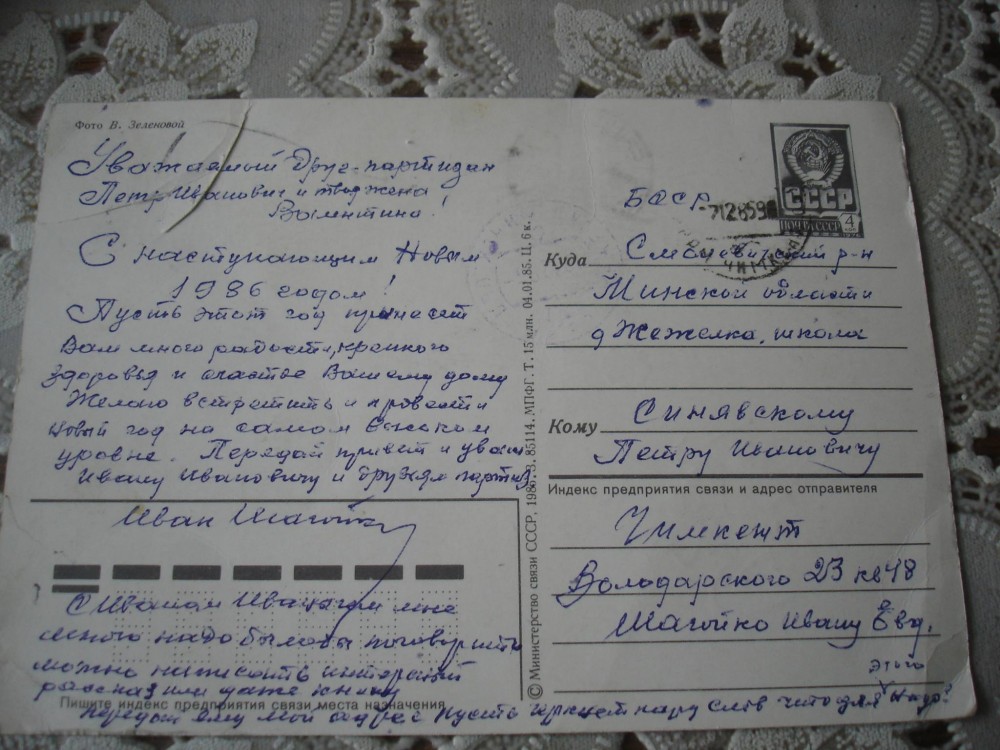 Фото В. Зеленовой
Уважаемый Друг-партизан
Петр Иванович и твоя жена
Валентина!
С наступающим Новым
1986 годом!
Пусть этот год принесет
Вам много радости, крепкого
здоровья и счастье Вашему дому
Желаю встретить и провести
Новый год на самом высоком
уровне. Передай привет и уваж
Ивану Ивановичу и друзям партиз
Иван Шагойко
С Иваном Ивановичем мне
много надо было бы поговорить
можно написать интересный
рассказ или даже книгу
Пишите индекс предприятия связи места назначения
передай ему мой адрес пусть черкнет пару слов что для этого надо?
© Министерство связи СССР. З. 85114. МПФГ. Т. 15 млн. 04.01.85. Ц. 6 к.
БССР
712859
СССР
ПОЧТА СССР
4
Куда
р-н
Минской области
д Жежелка, школа
Кому Синявскому
Петру Ивановичу
Индекс предприятия связи и адрес отправителя
Чимкент
Володарского 23 кв 48
Шагойко Ивану Евд.